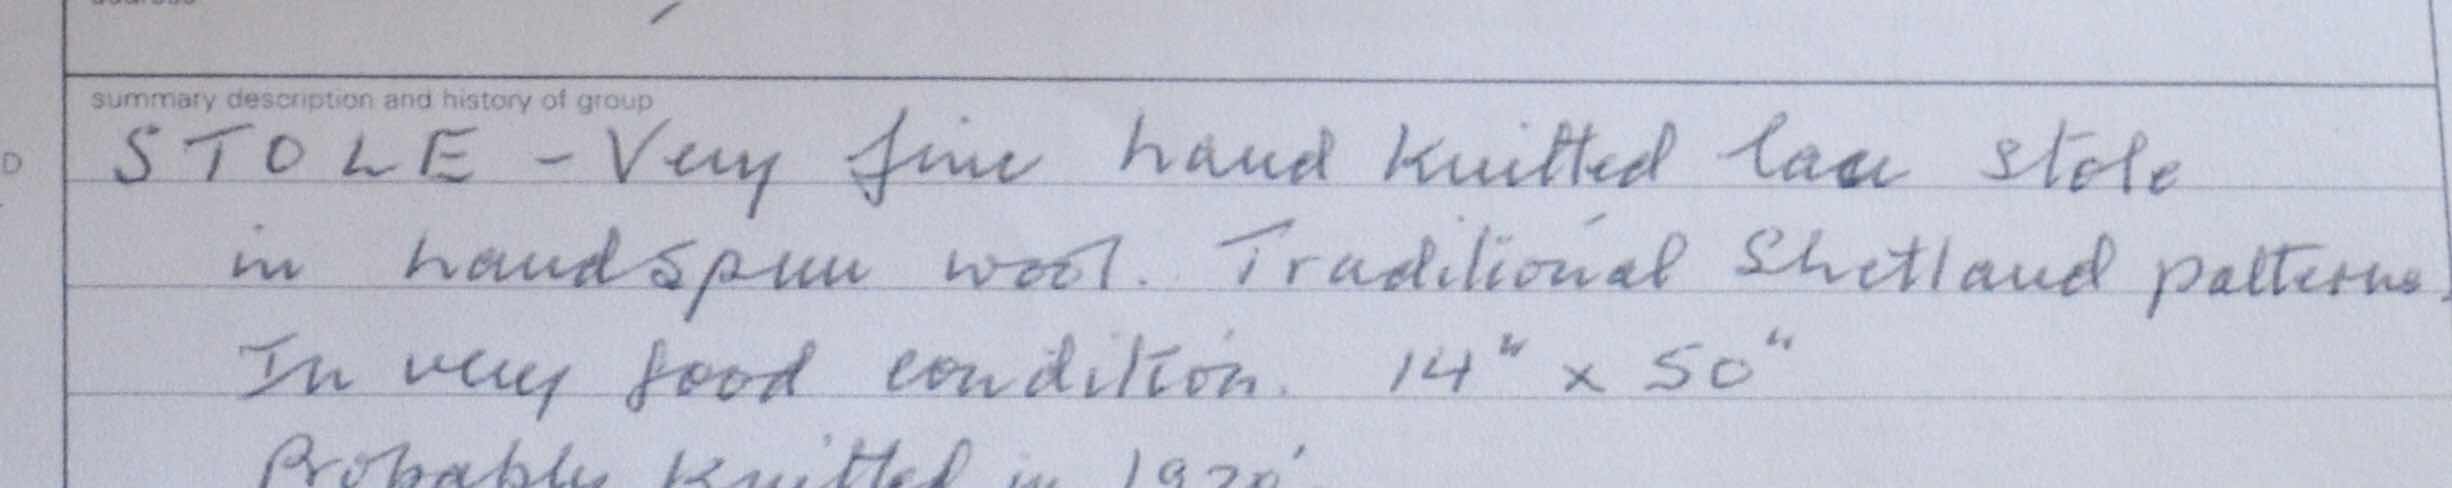 summary description and history of group
STOLE - Very fine hand knitted lace stole
in handspun wool. Traditional Shetland patterns.
In very good condition. 14" x 50"
Probably knitted in 1920'